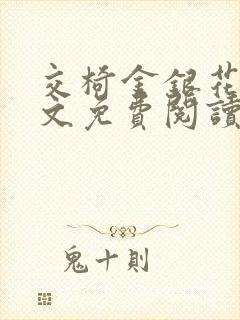 交椅金銀花
文免費閱讀
鬼十則